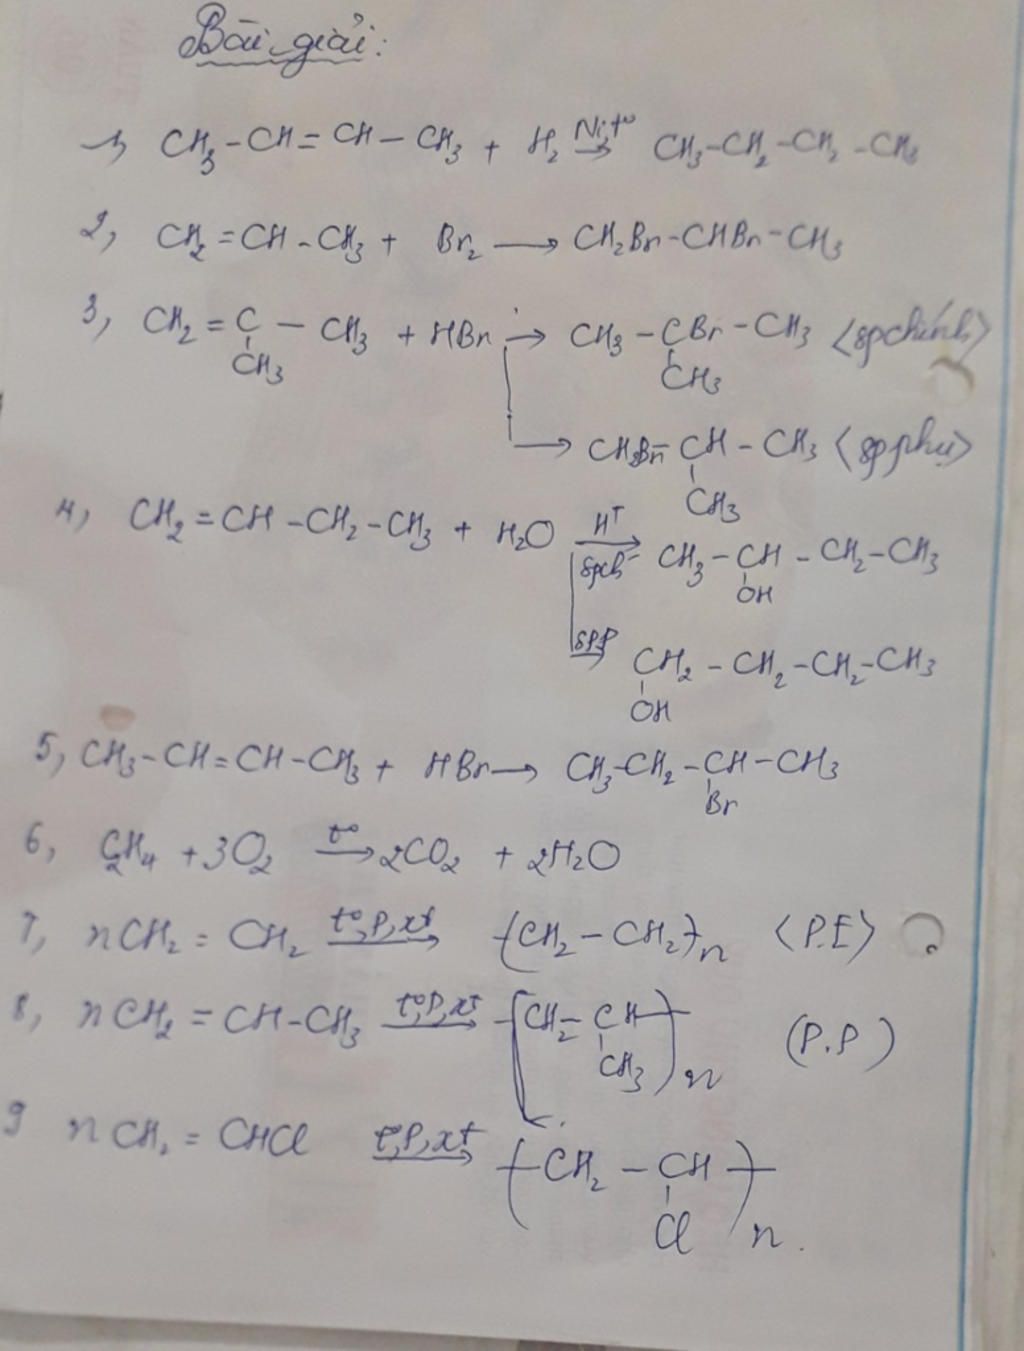 Bài giải:
1, CH3-CH=CH-CH3 + H2 Ni,t° → CH3-CH2-CH2-CH3
2, CH2=CH-CH3 + Br2 → CH2Br-CHBr-CH3
3, CH2=C-CH3 + HBr → CH3-CBr-CH3 <spchính>
CH3 CH3
→ CH2Br-CH-CH3 <spphụ>
CH3
4, CH2=CH-CH2-CH3 + H2O H+ → spch CH3-CH-CH2-CH3
OH
spp → CH2-CH2-CH2-CH3
OH
5, CH3-CH=CH-CH3 + HBr → CH3-CH2-CH-CH3
Br
6, C2H4 + 3O2 t° → 2CO2 + 2H2O
7, nCH2=CH2 t°,P,xt → (CH2-CH2)n <P.E>
8, nCH2=CH-CH3 t°,P,xt → (CH2-CH)n (P.P)
CH3
9 nCH2=CHCl t°,P,xt → (CH2-CH)n.
Cl